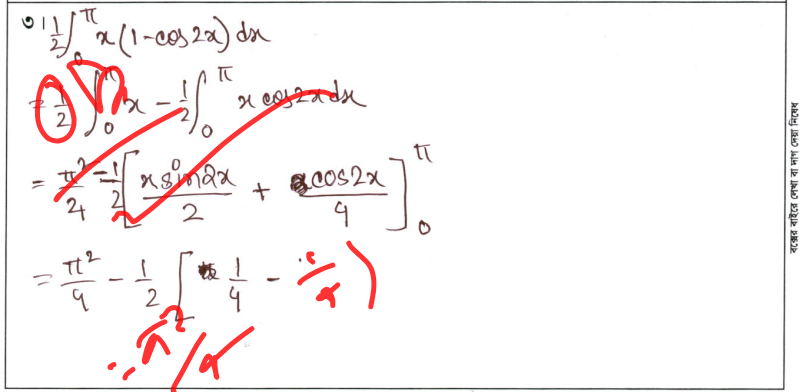 ৩। 1/2 ∫₀^π x(1-cos2x) dx
= 1/2 ∫₀^π x - 1/2 ∫₀^π x cos2x dx
= π²/4 - 1/2 [ x sin2x/2 + cos2x/4 ]₀^π
= π²/4 - 1/2 [ 1/4 - 1/4 )
= π²/4
বক্সের বাইরে লেখা বা দাগ দেয়া নিষেধ